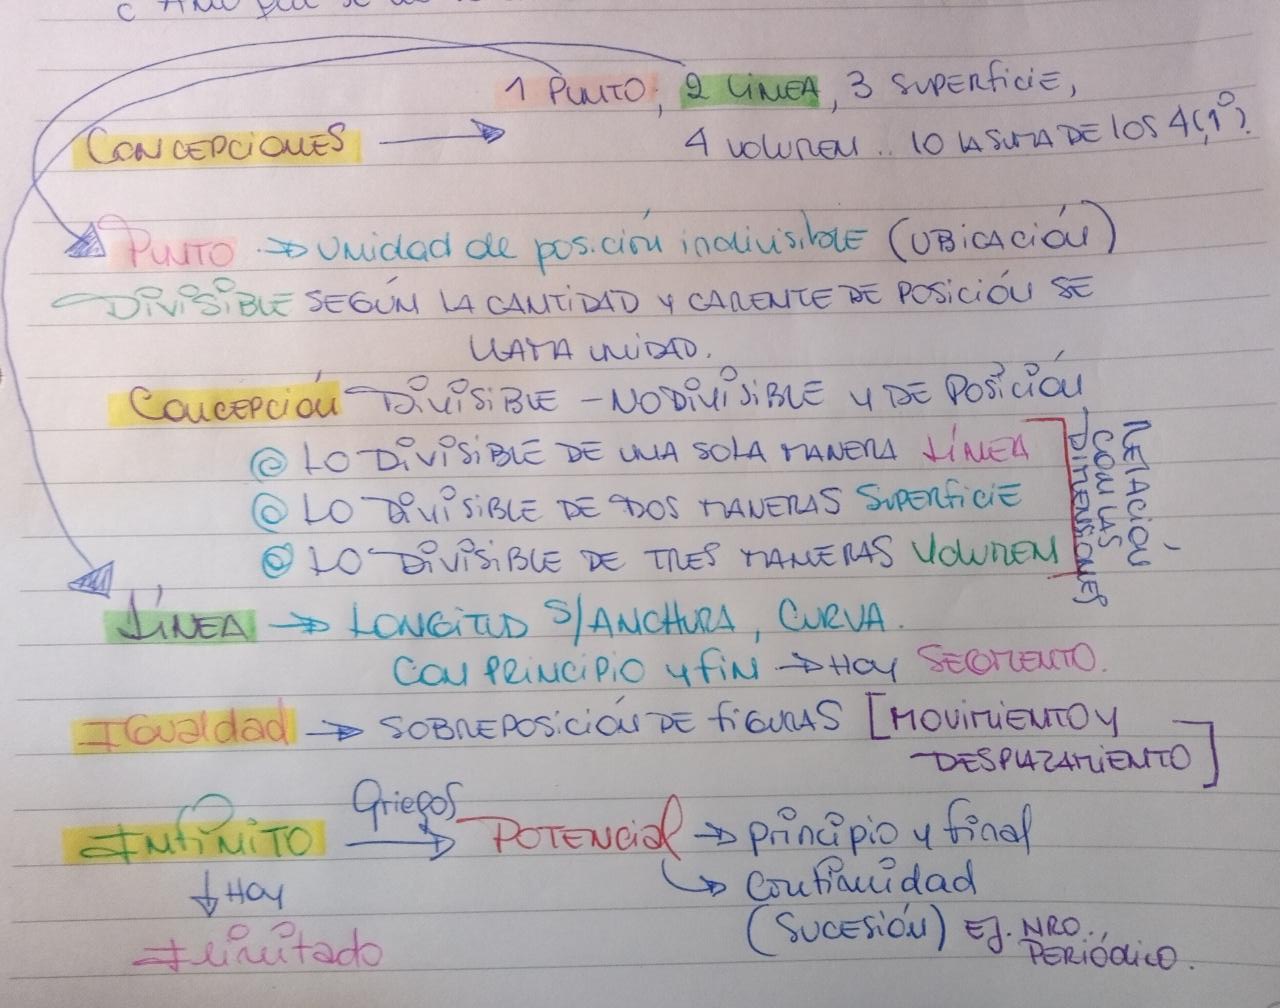 1 PUNTO, 2 LÍNEA, 3 SUPERFICIE,
CONCEPCIONES → 4 VOLUMEN .. 10 LA SUMA DE LOS 4 (1°).
PUNTO → Unidad de posición indivisible (UBICACIÓN)
DIVISIBLE SEGÚN LA CANTIDAD Y CARENTE DE POSICIÓN SE
LLAMA UNIDAD.
CONCEPCIÓN DIVISIBLE - NO DIVISIBLE Y DE POSICIÓN
@ LO DIVISIBLE DE UNA SOLA MANERA LÍNEA
@ LO DIVISIBLE DE DOS MANERAS SUPERFICIE
@ LO DIVISIBLE DE TRES MANERAS VOLUMEN
RELACIÓN
CON LAS
DIMENSIONES
LÍNEA → LONGITUD S/ANCHURA, CURVA.
CON PRINCIPIO Y FIN → HOY SEGMENTO.
IGualdad → SOBREPOSICIÓN DE FIGURAS [MOVIMIENTO Y
DESPLAZAMIENTO]
Griegos
INFINITO → POTENCIAL → principio y final
↓ HOY ↳ Continuidad
Ilimitado (SUCESIÓN) EJ. NRO.
PERIÓDICO.